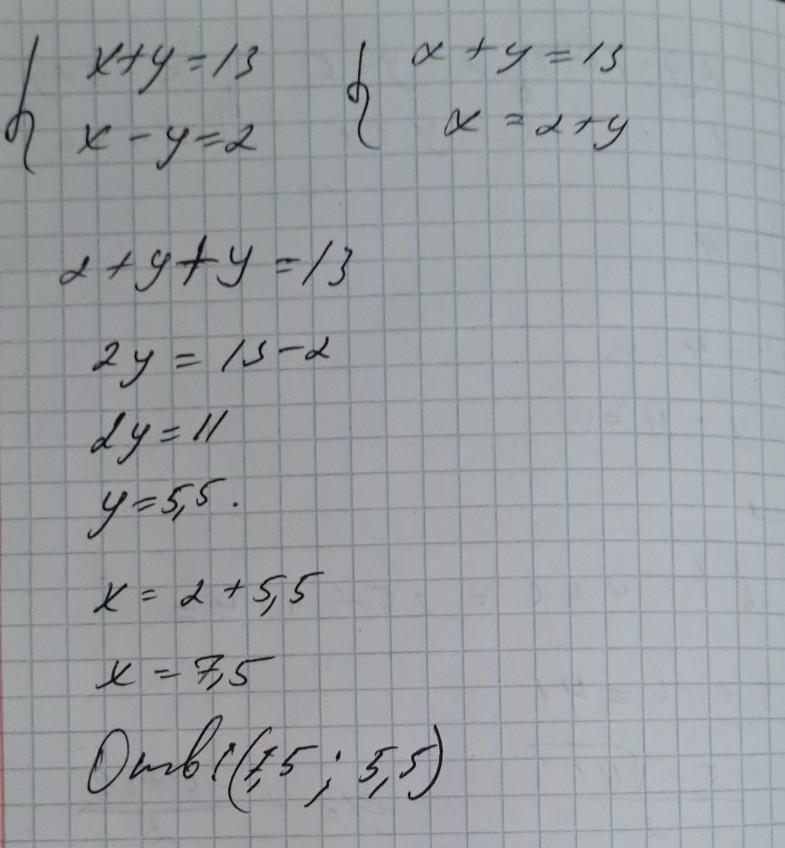 { x+y=13
x-y=2
{ x+y=13
x=2+y
2+y+y=13
2y=13-2
2y=11
y=5,5.
x=2+5,5
x=7,5
Отв: (7,5; 5,5)